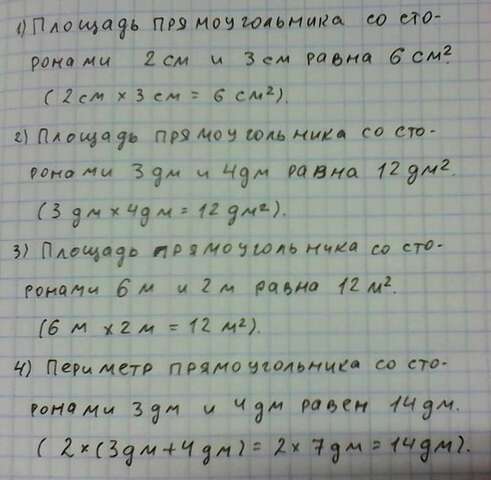 1) Площадь прямоугольника со сто-
ронами 2 см и 3 см равна 6 см².
(2 см × 3 см = 6 см²).
2) Площадь прямоугольника со сто-
ронами 3 дм и 4 дм равна 12 дм².
(3 дм × 4 дм = 12 дм²).
3) Площадь прямоугольника со сто-
ронами 6 м и 2 м равна 12 м².
(6 м × 2 м = 12 м²).
4) Периметр прямоугольника со сто-
ронами 3 дм и 4 дм равен 14 дм.
(2 × (3 дм + 4 дм) = 2 × 7 дм = 14 дм).